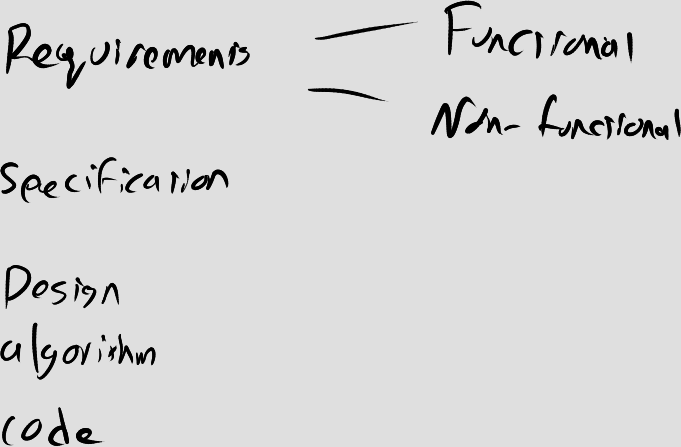 Requirements — Functional
— Non-functional
Specification
Design
algorithm
code